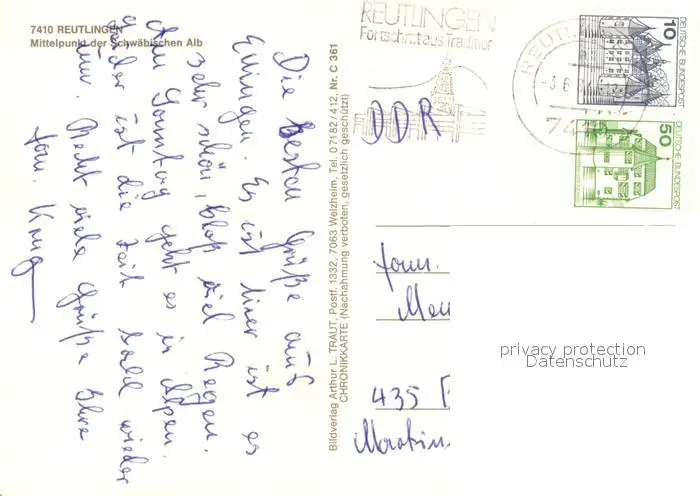 7410 REUTLINGEN
Mittelpunkt der Schwäbischen Alb
Die besten Grüße aus
Eningen. Es ist hier ist es
sehr schön, bloß viel Regen.
Am Sonntag geht es in Alpen.
leider ist die Zeit bald wieder
um. Recht viele Grüße Ihre
Fam.
Bildverlag Arthur L. TRAUT, Postf. 1332, 7063 Welzheim, Tel. 07182/412, Nr. C 361
CHRONIKKARTE (Nachahmung verboten, gesetzlich geschützt)
REUTLINGEN
Fortschritt aus Tradition
DEUTSCHE BUNDESPOST
10
DEUTSCHE BUNDESPOST
50
DDR
Fam.
435
privacy protection
Datenschutz